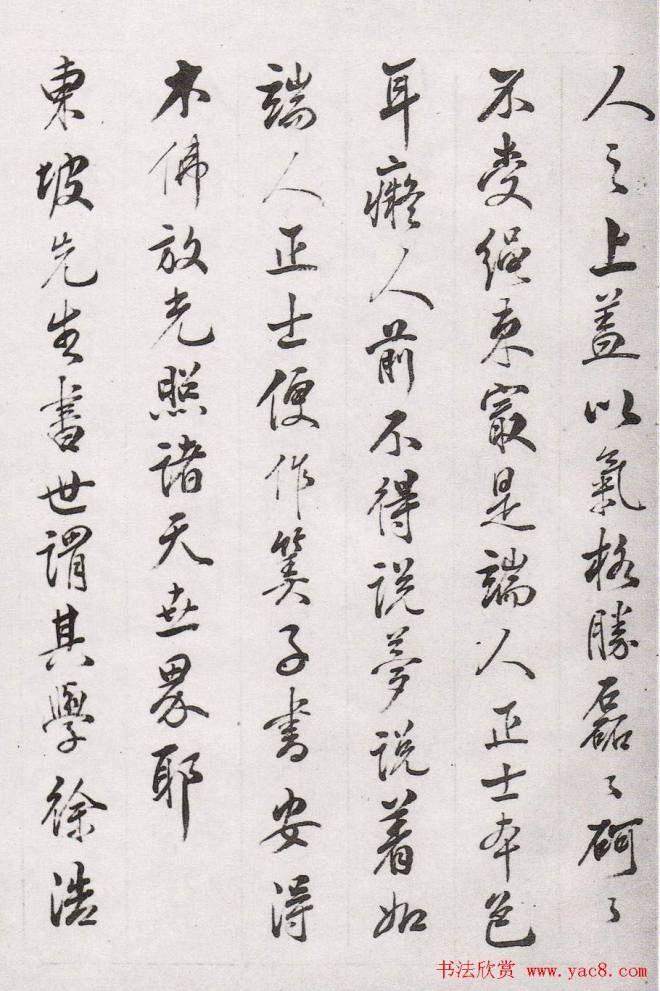 人之上蓋以氣格勝磊〻砢〻
不受繩束最是端人正士本色
耳癡人前不得說夢說着如
端人正士便作筭子書安得
木佛放光照諸天世界耶
東坡先生書世謂其學徐浩
书法欣赏 www.yac8.com